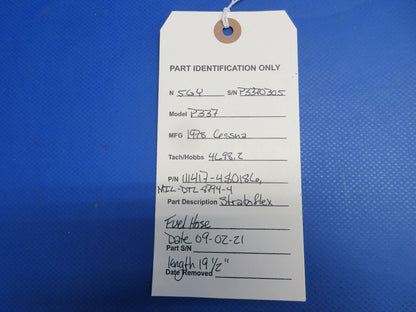 PART IDENTIFICATION ONLY
N 5GY S/N P3370305
Model P337
MFG 1978 Cessna
Tach/Hobbs 4698.2
P/N 111417-4S0186,
MIL-DTL-8794-4
Part Description Stratoflex
Fuel Hose
Date 09-02-21
Part S/N
length 19 1/2"
Date Removed